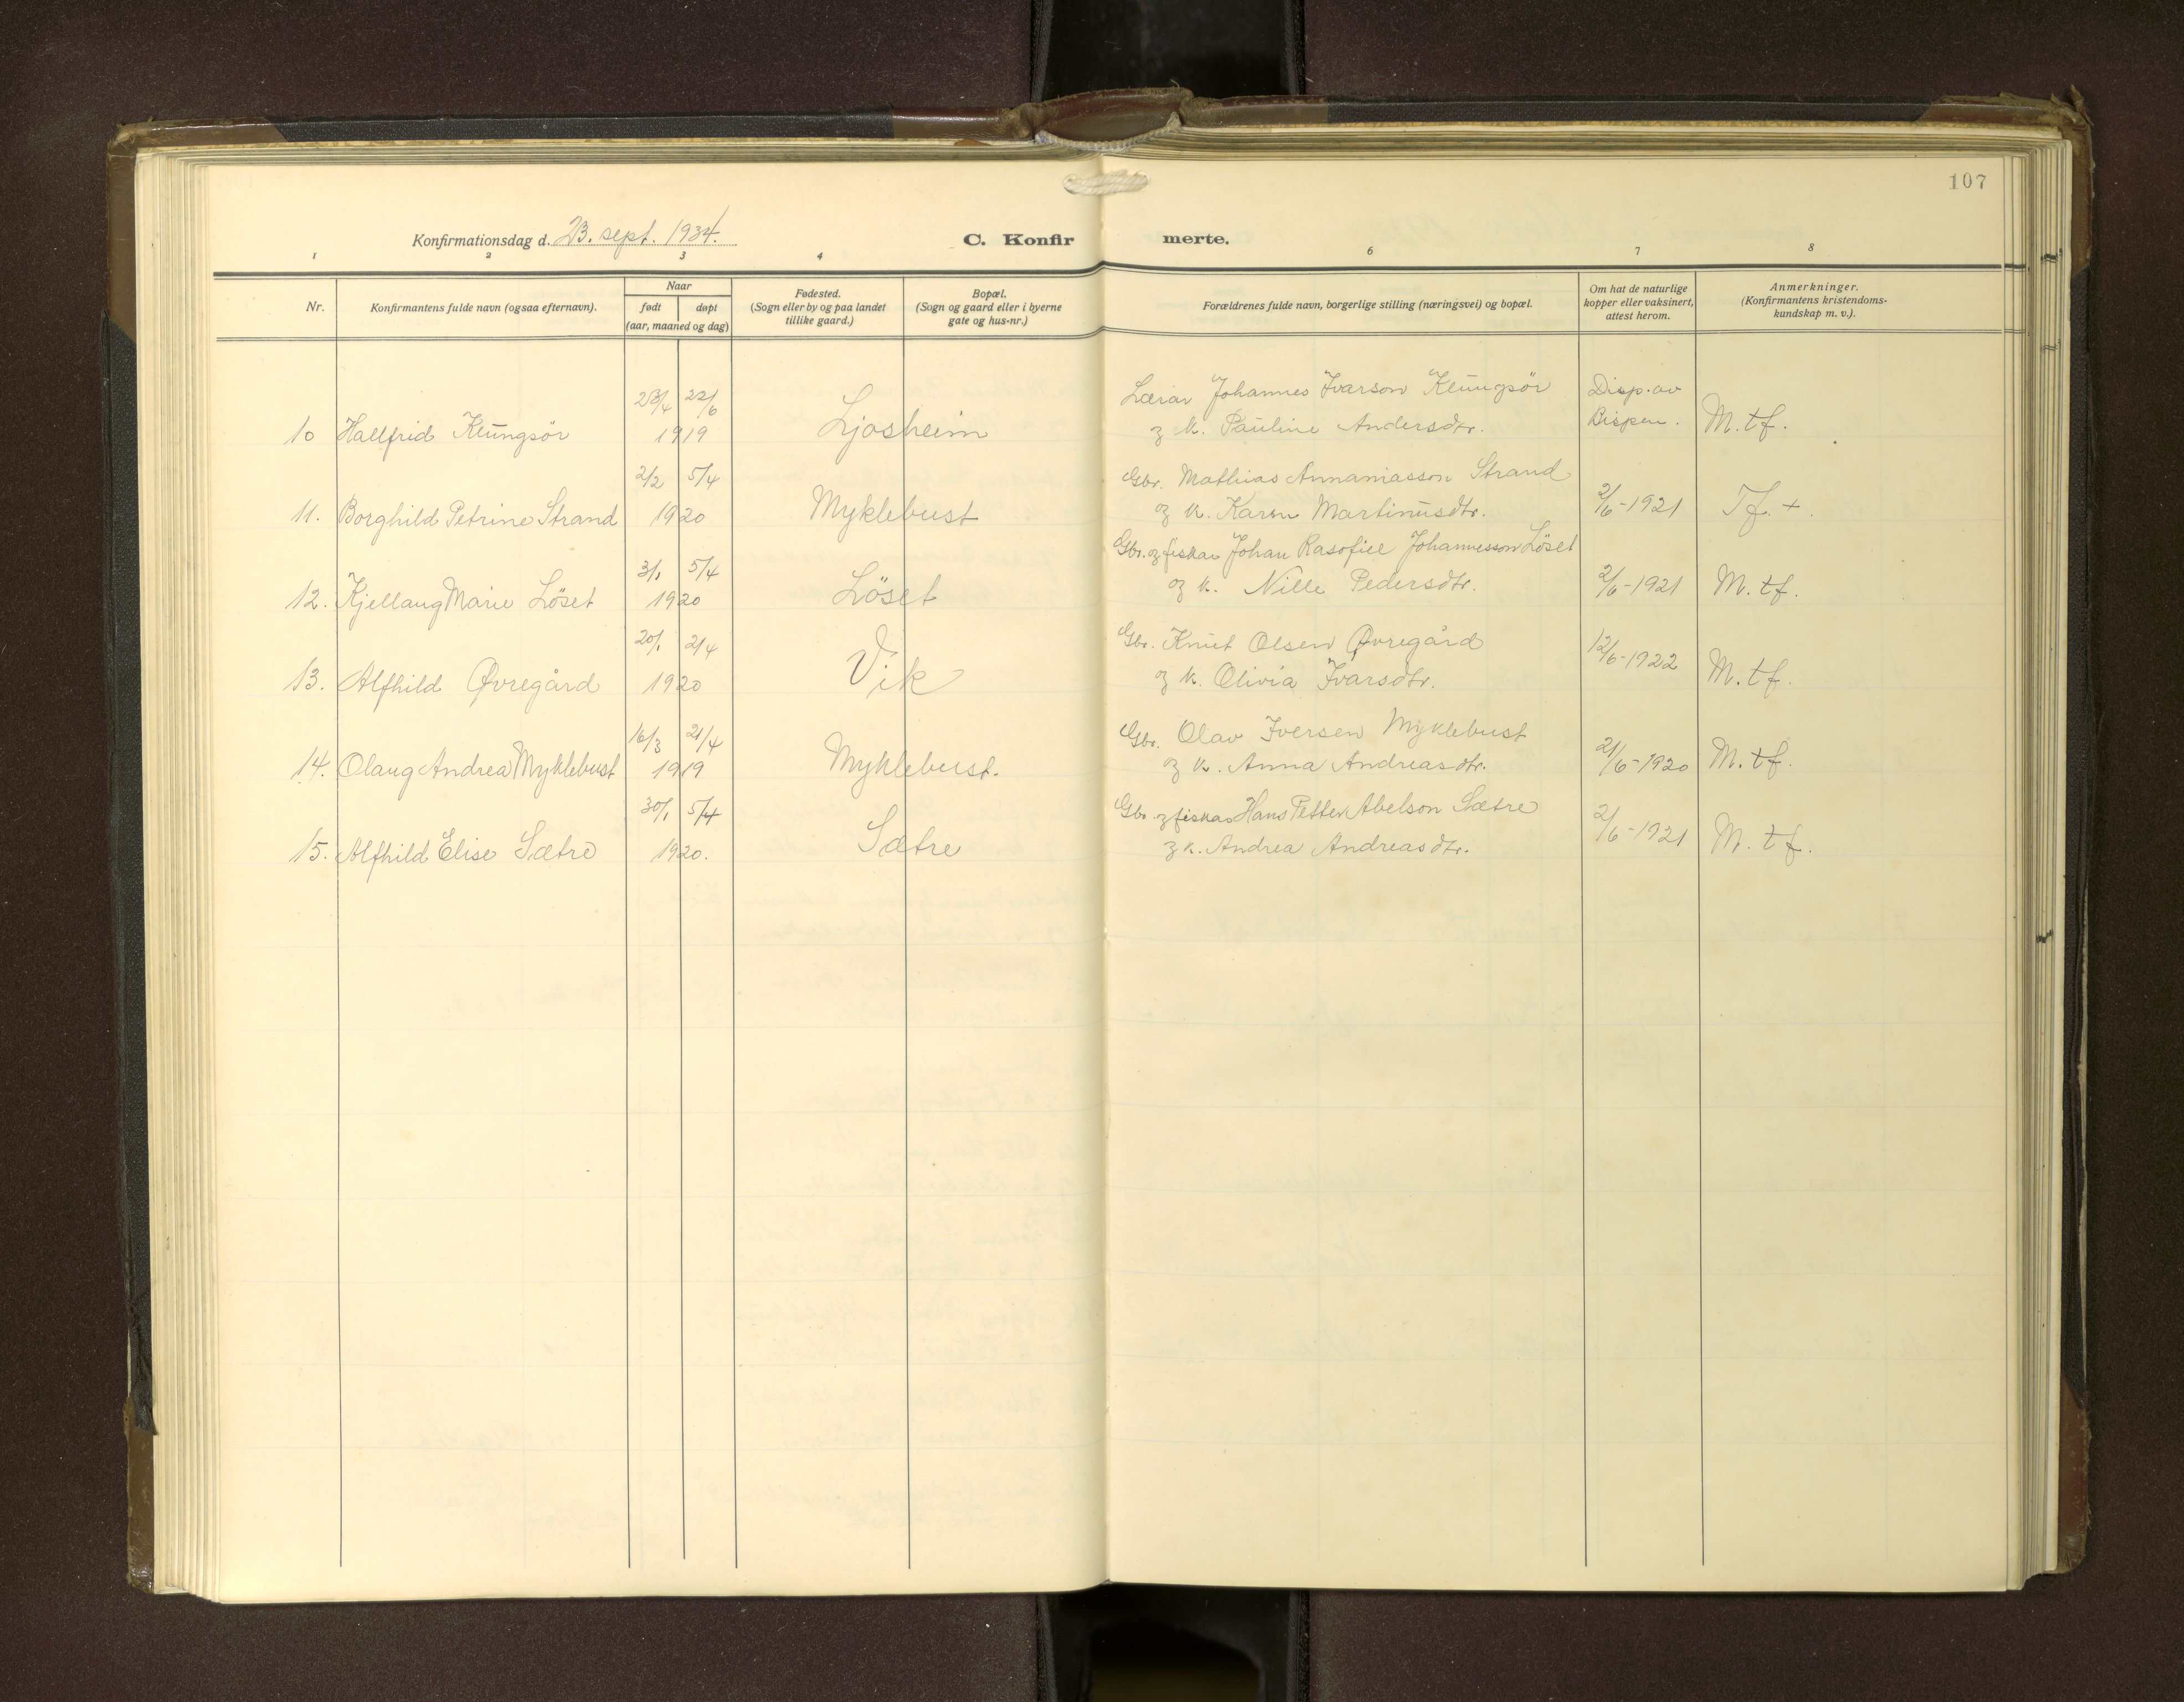 107
Konfirmationsdag d. 23. sept. 1934.
C. Konfirmerte.
1 2 3 4 6 7 8
Nr.
Konfirmantens fulde navn (ogsaa efternavn).
Naar
født døpt
(aar, maaned og dag)
Fødested.
(Sogn eller by og paa landet
tillike gaard.)
Bopæl.
(Sogn og gaard eller i byerne
gate og hus-nr.)
Forældrenes fulde navn, borgerlige stilling (næringsvei) og bopæl.
Om hat de naturlige
kopper eller vaksinert,
attest herom.
Anmerkninger.
(Konfirmantens kristendoms-
kundskap m. v.).
23/4 22/6 Lærar Johannes Ivarson Klungsör Disp. av
10 Hallfrid Klungsör 1919 Ljosheim og k. Pauline Andersdtr. Bispen. M. tf.
2/2 5/4 Gbr. Mathias Annaniasson Strand
11. Borghild Petrine Strand 1920 Myklebust og k. Karen Martinusdtr. 2/6-1921 Tf. +.
3/1 5/4 Gbr. og fiskar Johan Rasofiel Johannesson Löset
12. Kjellaug Marie Löset 1920 Löset og k. Nille Pedersdtr. 2/6-1921 M. tf.
20/1 2/4 Gbr. Knut Olsen Øvregård
13. Alfhild Øvregård 1920 Vik og k. Olivia Ivarsdtr. 12/6-1922 M. tf.
16/3 21/4 Gbr. Olav Iversen Myklebust
14. Olaug Andrea Myklebust 1919 Myklebust. og k. Anna Andreasdtr. 21/6-1920 M. tf.
30/1 5/4 Gbr. og fiskar Hans Petter Abelson Sætre
15. Alfhild Elise Sætre 1920. Sætre og k. Andrea Andreasdtr. 2/6-1921 M. tf.